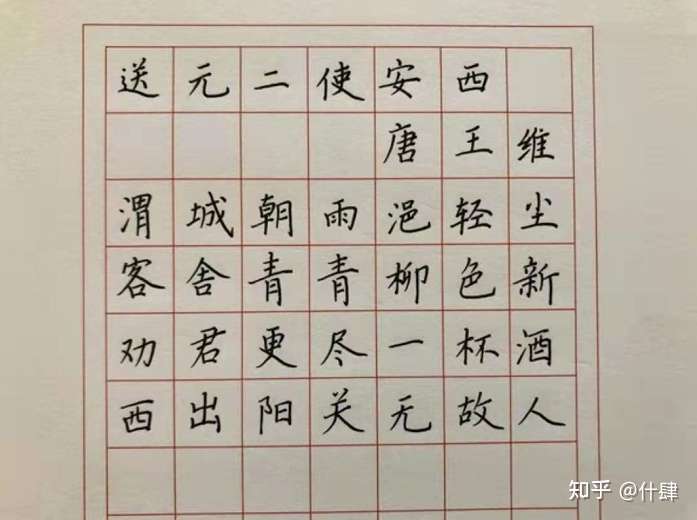 送元二使安西
唐王维
渭城朝雨浥轻尘
客舍青青柳色新
劝君更尽一杯酒
西出阳关无故人
知乎 @什肆